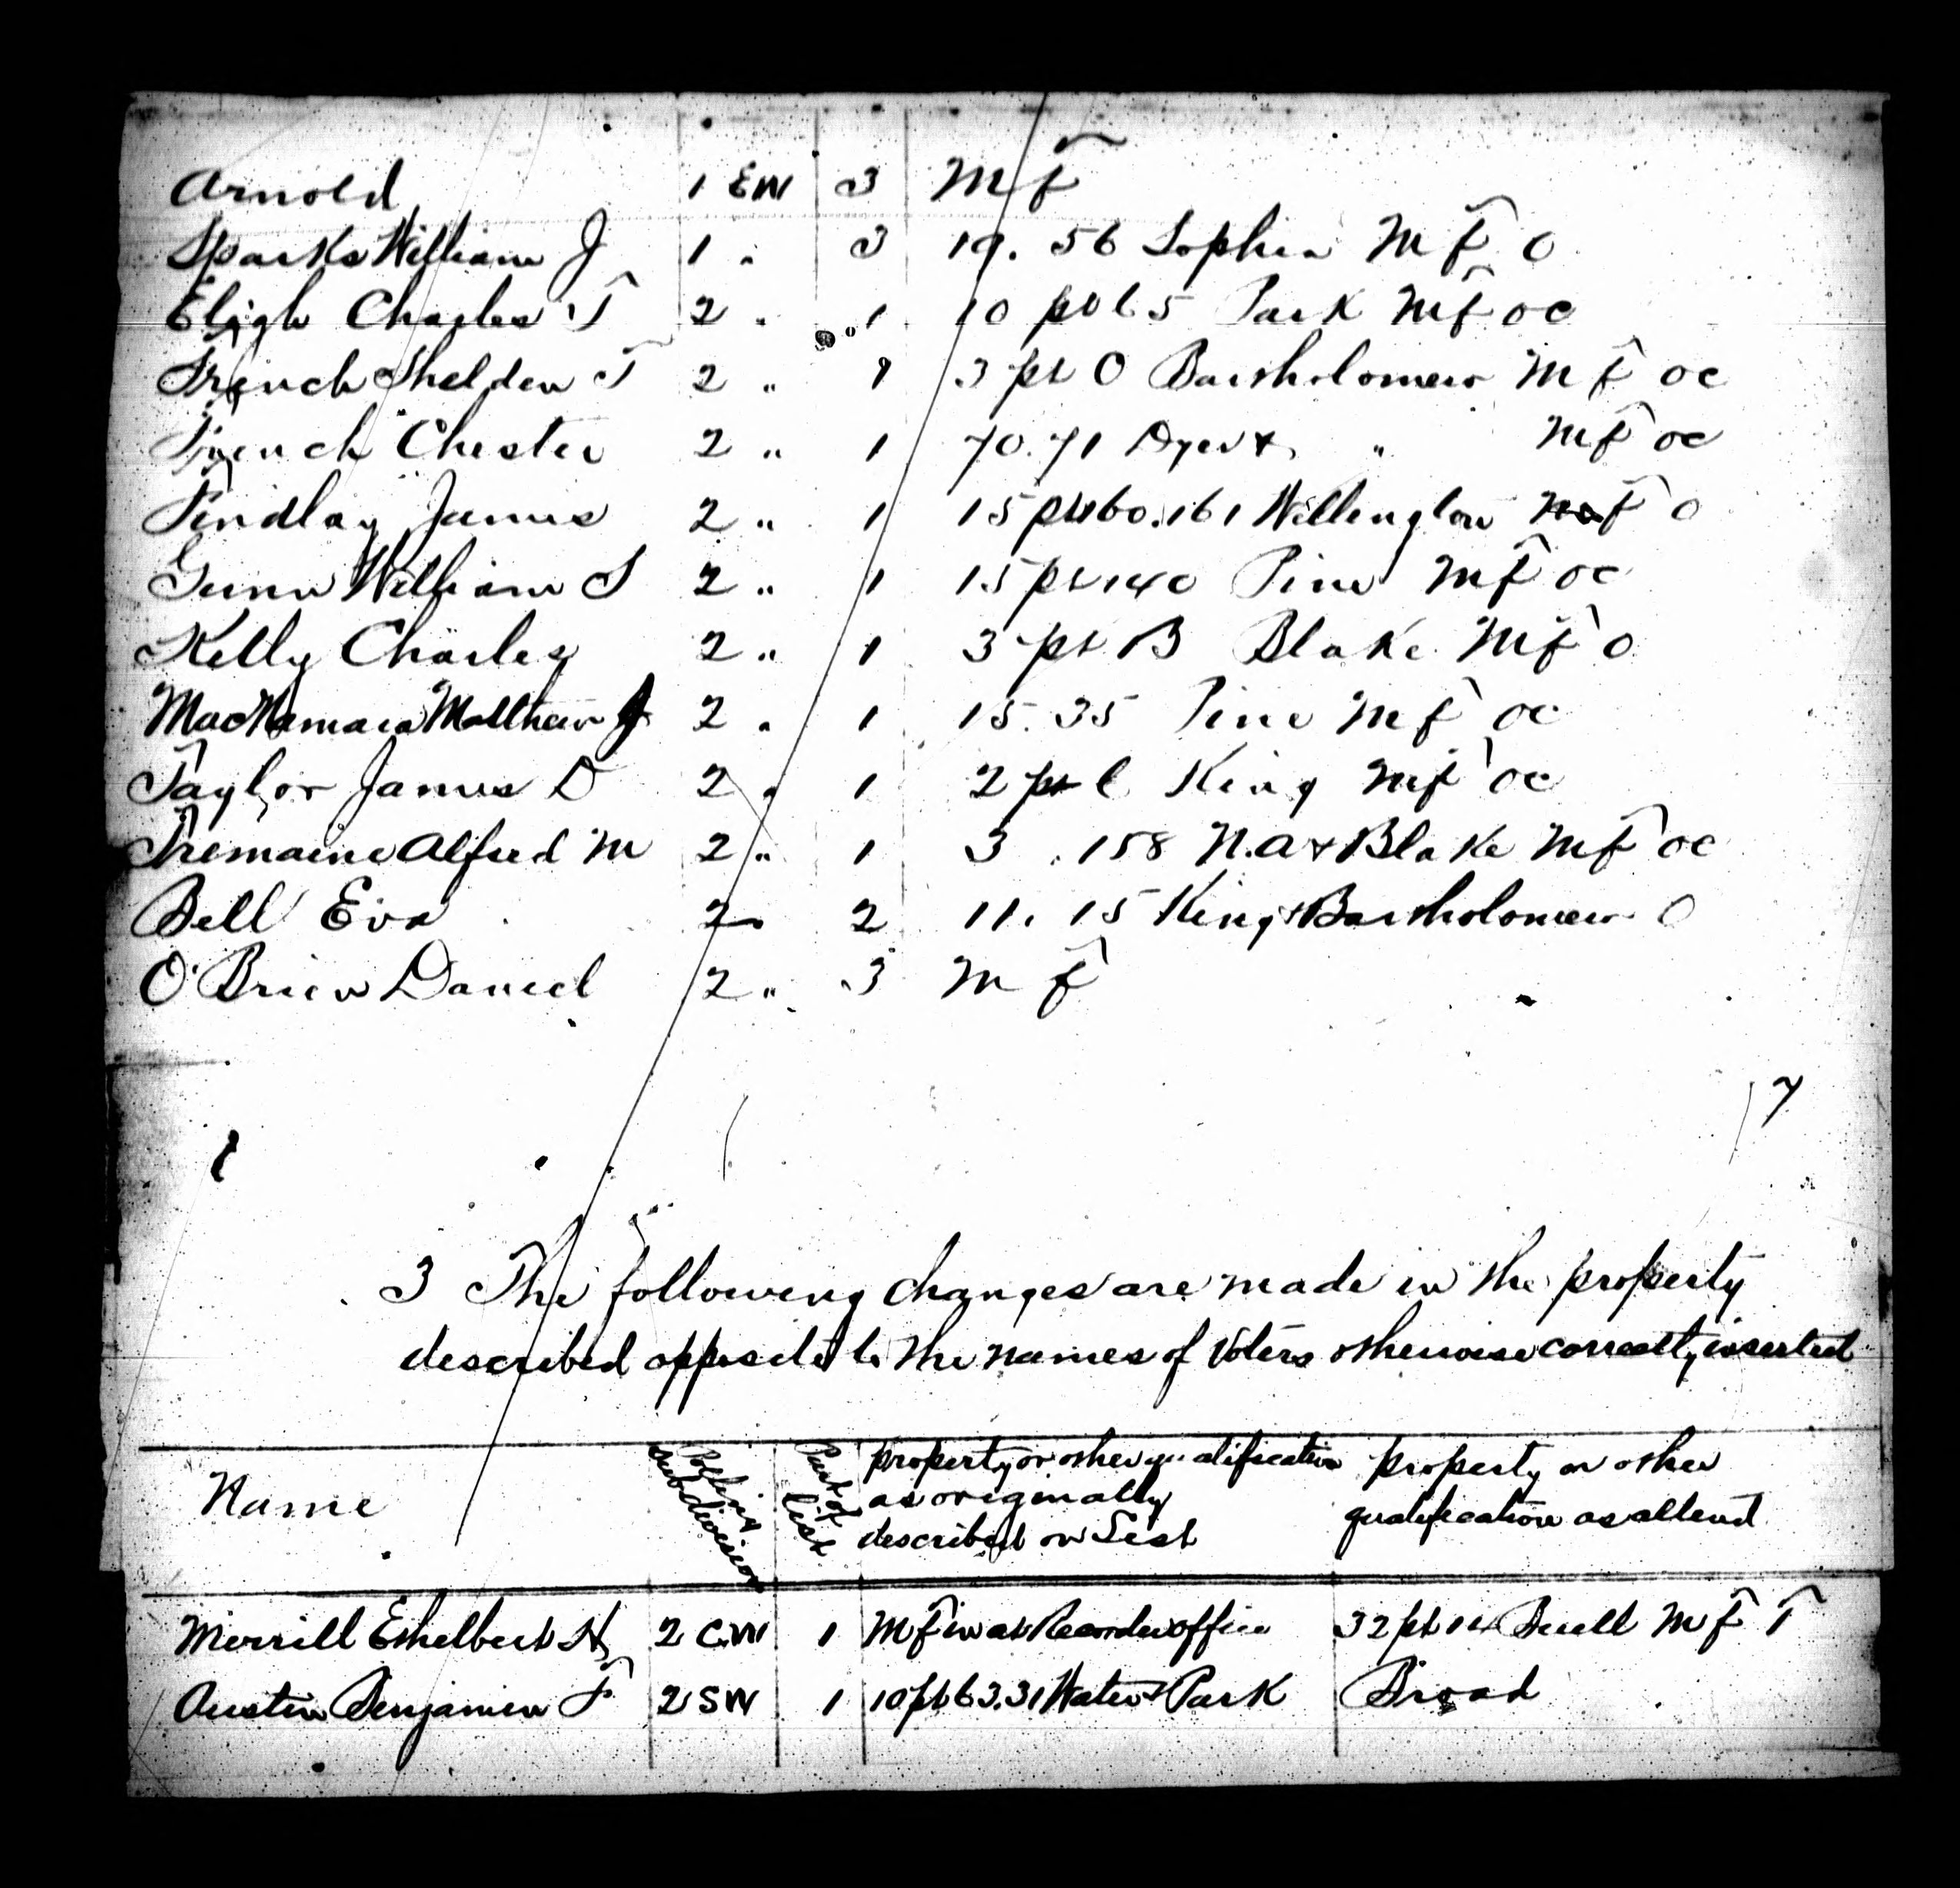 Arnold 1 EW 3 MF
Sparks William J 1 " 3 19. 56 Sophia MF O
Eligh Charles T 2 " 1 10 pt 65 Park MF OC
French Shelden T 2 " 1 3 pt O Bartholomew MF OC
French Chester 2 " 1 70.71 Dyer & " MF OC
Findlay James 2 " 1 15 pt 160.161 Wellington F O
Gunn William S 2 " 1 15 pt 140 Pine MF OC
Kelly Charles 2 " 1 3 pt B Blake MF O
MacNamara Matthew J 2 " 1 15. 35 Pine MF OC
Taylor James D 2 " 1 2 pt C King MF OC
Tremaine Alfred M 2 " 1 3 . 158 N.A & Blake MF OC
Bell Eva 2 " 2 11. 15 King & Bartholomew O
O'Brien Daniel 2 " 3 MF
7
3 The following changes are made in the property
described opposite to the names of Voters otherwise correctly inserted
Name Polling subdivision Part of list property or other qualification as originally described on List property or other qualification as altered
Merrill Ethelbert H 2 C.W 1 MF in at Recorders office 32 pt 14 Buell MF T
Austin Benjamin F 2 SW 1 10 pt 63.31 Water & Park Broad